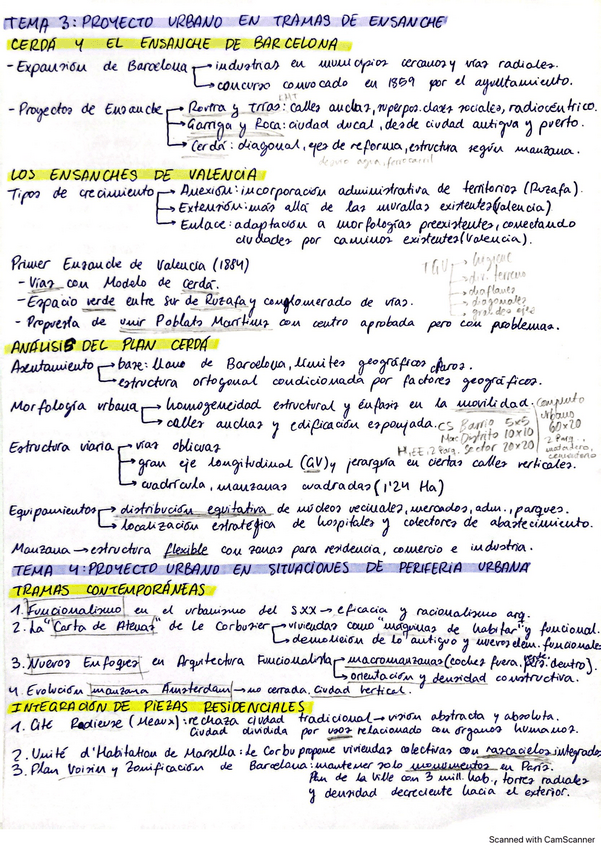 TEMA 3: PROYECTO URBANO EN TRAMAS DE ENSANCHE
CERDÁ Y EL ENSANCHE DE BARCELONA
- Expansión de Barcelona → industrias en municipios cercanos y vías radiales.
→ concurso convocado en 1859 por el ayuntamiento.
- Proyectos de Ensanche → Rovira y Trías: calles anchas, superpos. clases sociales, radiocéntrico.
→ Garriga y Roca: ciudad ducal, desde ciudad antigua y puerto.
→ Cerdá: diagonal, ejes de reforma, estructura según manzana.
agua, ferrocarril
LOS ENSANCHES DE VALENCIA
Tipos de crecimiento → Anexión: incorporación administrativa de territorios (Ruzafa).
→ Extensión: más allá de las murallas existentes (Valencia)
→ Enlace: adaptación a morfologías preexistentes, conectando
ciudades por caminos existentes (Valencia).
Primer Ensanche de Valencia (1884)
- Vías con Modelo de Cerdá.
- Espacio verde entre Sur de Ruzafa y conglomerado de vías.
- Propuesta de unir Poblats Marítims con centro aprobada pero con problemas.
1 GV → higiene
→ div. terreno
→ chaflanes
→ diagonales
→ gran eje
ANÁLISIS DEL PLAN CERDÁ
Asentamiento → base: llano de Barcelona, límites geográficos claros.
→ estructura ortogonal condicionada por factores geográficos.
Morfología urbana → homogeneidad estructural y énfasis en la movilidad.
→ calles anchas y edificación esponjada.
CS Barrio 5x5
Mer. Distrito 10x10
H, EE, 2 Parq. Sector 20x20
Conjunto
urbano
60x20
2 Parq.
matadero,
cementerio
Estructura viaria → vías oblicuas
→ gran eje longitudinal (GV) y jerarquía en ciertas calles verticales.
→ cuadrícula, manzanas cuadradas (1'24 Ha)
Equipamientos → distribución equitativa de núcleos vecinales, mercados, adm., parques.
→ localización estratégica de hospitales y colectores de abastecimiento.
Manzana → estructura flexible con zonas para residencia, comercio e industria.
TEMA 4: PROYECTO URBANO EN SITUACIONES DE PERIFERIA URBANA
TRAMAS CONTEMPORÁNEAS
1. Funcionalismo en el urbanismo del SXX → eficacia y racionalismo arq.
2. La "Carta de Atenas" de Le Corbusier → viviendas como "máquinas de habitar" y funcional.
→ demolición de lo antiguo y nuevos elem. funcionales
3. Nuevos Enfoques en Arquitectura Funcionalista → macromanzanas (coches fuera, dentro).
→ orientación y densidad constructiva.
4. Evolución manzana Amsterdam → no cerrada, ciudad vertical.
INTEGRACIÓN DE PIEZAS RESIDENCIALES
1. Cité Radieuse (Meaux): rechaza ciudad tradicional → visión abstracta y absoluta.
Ciudad dividida por usos relacionado con órganos humanos.
2. Unité d'Habitation de Marsella: Le Corbu propone viviendas colectivas con rascacielos integrados
3. Plan Voisin y Zonificación de Barcelona: mantener solo monumentos en París.
Plan de la Ville con 3 mill. hab., torres radiales
y densidad decreciente hacia el exterior.
Scanned with CamScanner